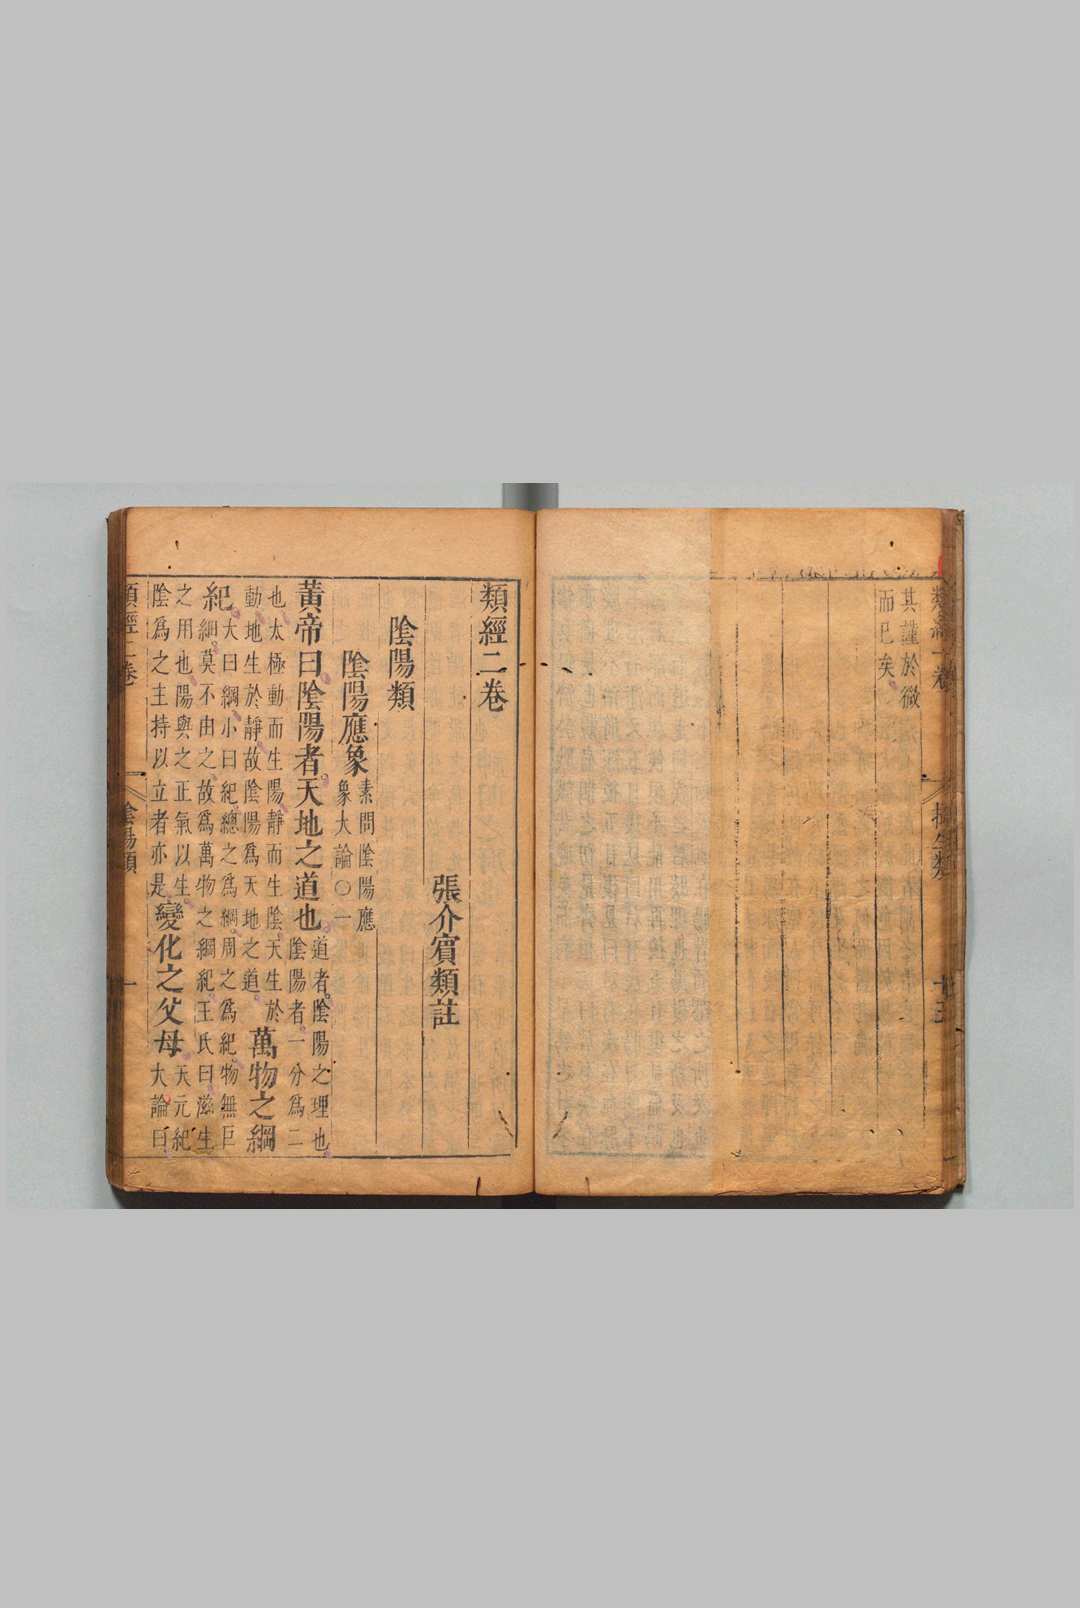 類經一卷 攝生類 十五
其謹於微
而已矣
類經二卷
張介賓類註
陰陽類
陰陽應象素問陰陽應象大論○一
黃帝曰陰陽者天地之道也道者陰陽之理也陰陽者一分爲二
也太極動而生陽靜而生陰天生於動地生於靜故陰陽爲天地之道萬物之綱
紀大曰綱小曰紀總之爲綱周之爲紀物無巨細莫不由之故爲萬物之綱紀王氏曰滋生
之用也陽與之正氣以生陰爲之主持以立者亦是變化之父母天元紀大論曰
類經二卷 陰陽類 一